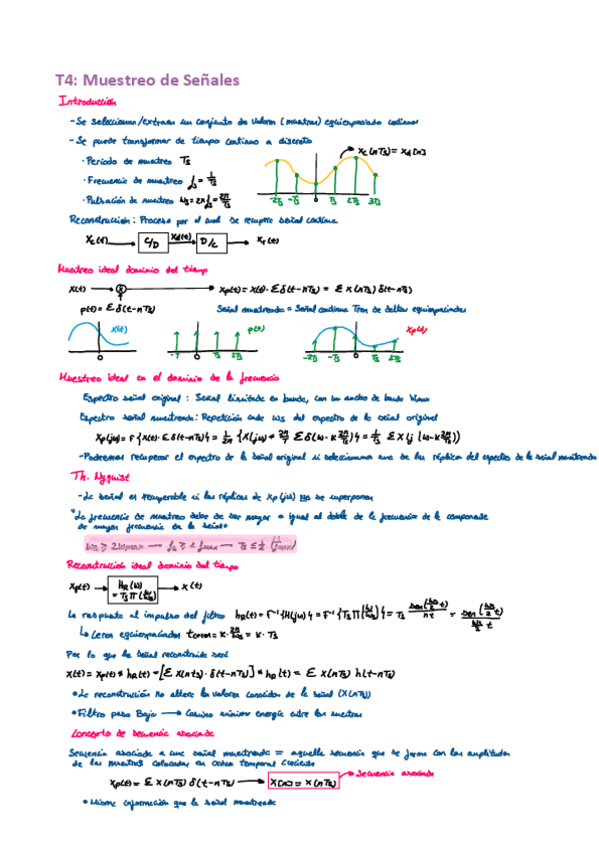 T4: Muestreo de Señales
Introducción
- Se seleccionan/extraen un conjunto de valores (muestras) equiespaciado
- Se puede transformar de tiempo continuo a discreto
· Periodo de muestreo Ts
· Frecuencia de muestreo fs = 1/Ts
· Pulsación de muestreo ωs = 2πfs = 2π/Ts
xc(nTs) = xd[n]
-2Ts -Ts 0 Ts 2Ts 3Ts
Reconstrucción: Proceso por el cual se recupera señal continua
xc(t) C/D xd(t) D/C xr(t)
Muestreo ideal dominio del tiempo
x(t) xp(t) = x(t) · Σ δ(t-nTs) = Σ x(nTs) δ(t-nTs)
p(t) = Σ δ(t-nTs) Señal muestreada = Señal continua Tren de deltas equiespaciadas
x(t) p(t) xp(t)
0 0 Ts 2Ts -2Ts -Ts 0 Ts 2Ts
Muestreo ideal en el dominio de la frecuencia
Espectro señal original: Señal limitada en banda, con un ancho de banda
Espectro señal muestreada: Repetición cada ωs del espectro de la señal original
- Podremos recuperar el espectro de la señal original si seleccionamos una de las réplicas del espectro de la señal muestreada
Th. Nyquist
- La señal es recuperable si las réplicas de Xp(jω) no se superponen
* La frecuencia de muestreo debe de ser mayor o igual al doble de la frecuencia de la componente
de mayor frecuencia de la señal
Reconstrucción ideal dominio del tiempo
xp(t) HR(ω) x(t)
La respuesta al impulso del filtro
Ceros equiespaciados
Por lo que la señal reconstruida será
x(t) = xp(t) * hR(t) = [Σ x(nTs) · δ(t-nTs)] * hR(t) = Σ x(nTs) h(t-nTs)
• La reconstrucción no altera los valores conocidos de la señal (x(nTs))
• Filtro paso Bajo Camino mínima energía entre las muestras
Concepto de secuencia asociada
Secuencia asociada a una señal muestreada = aquella secuencia que se forma con las amplitudes
de las muestras colocadas en orden temporal creciente
xp(t) = Σ x(nTs) δ(t-nTs) x[n] = x(nTs) Secuencia asociada
• Misma información que la señal muestreada